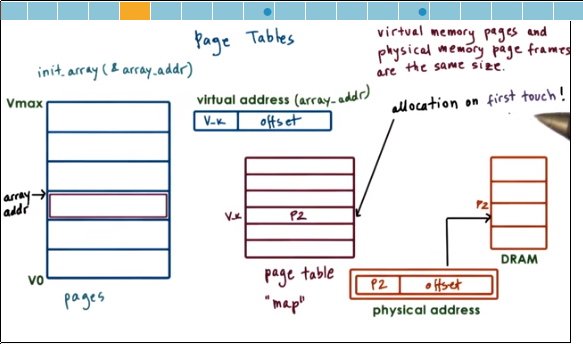 Page Tables
virtual memory pages and
physical memory page frames
are the same size.
init_array (& array_addr)
Vmax
virtual address (array_addr)
V_k offset
allocation on first touch!
array
addr
V_k P2
P2
DRAM
V0
pages
page table
"map"
P2 offset
physical address